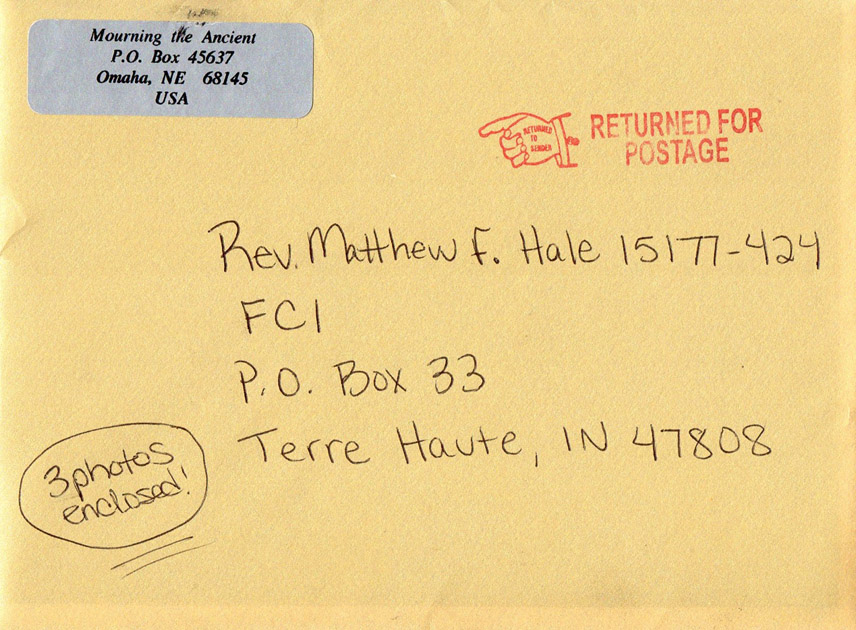 Mourning the Ancient
P.O. Box 45637
Omaha, NE 68145
USA
RETURNED
TO
SENDER
RETURNED FOR
POSTAGE
Rev. Matthew F. Hale 15177-424
FCI
P.O. Box 33
Terre Haute, IN 47808
3 photos
enclosed!